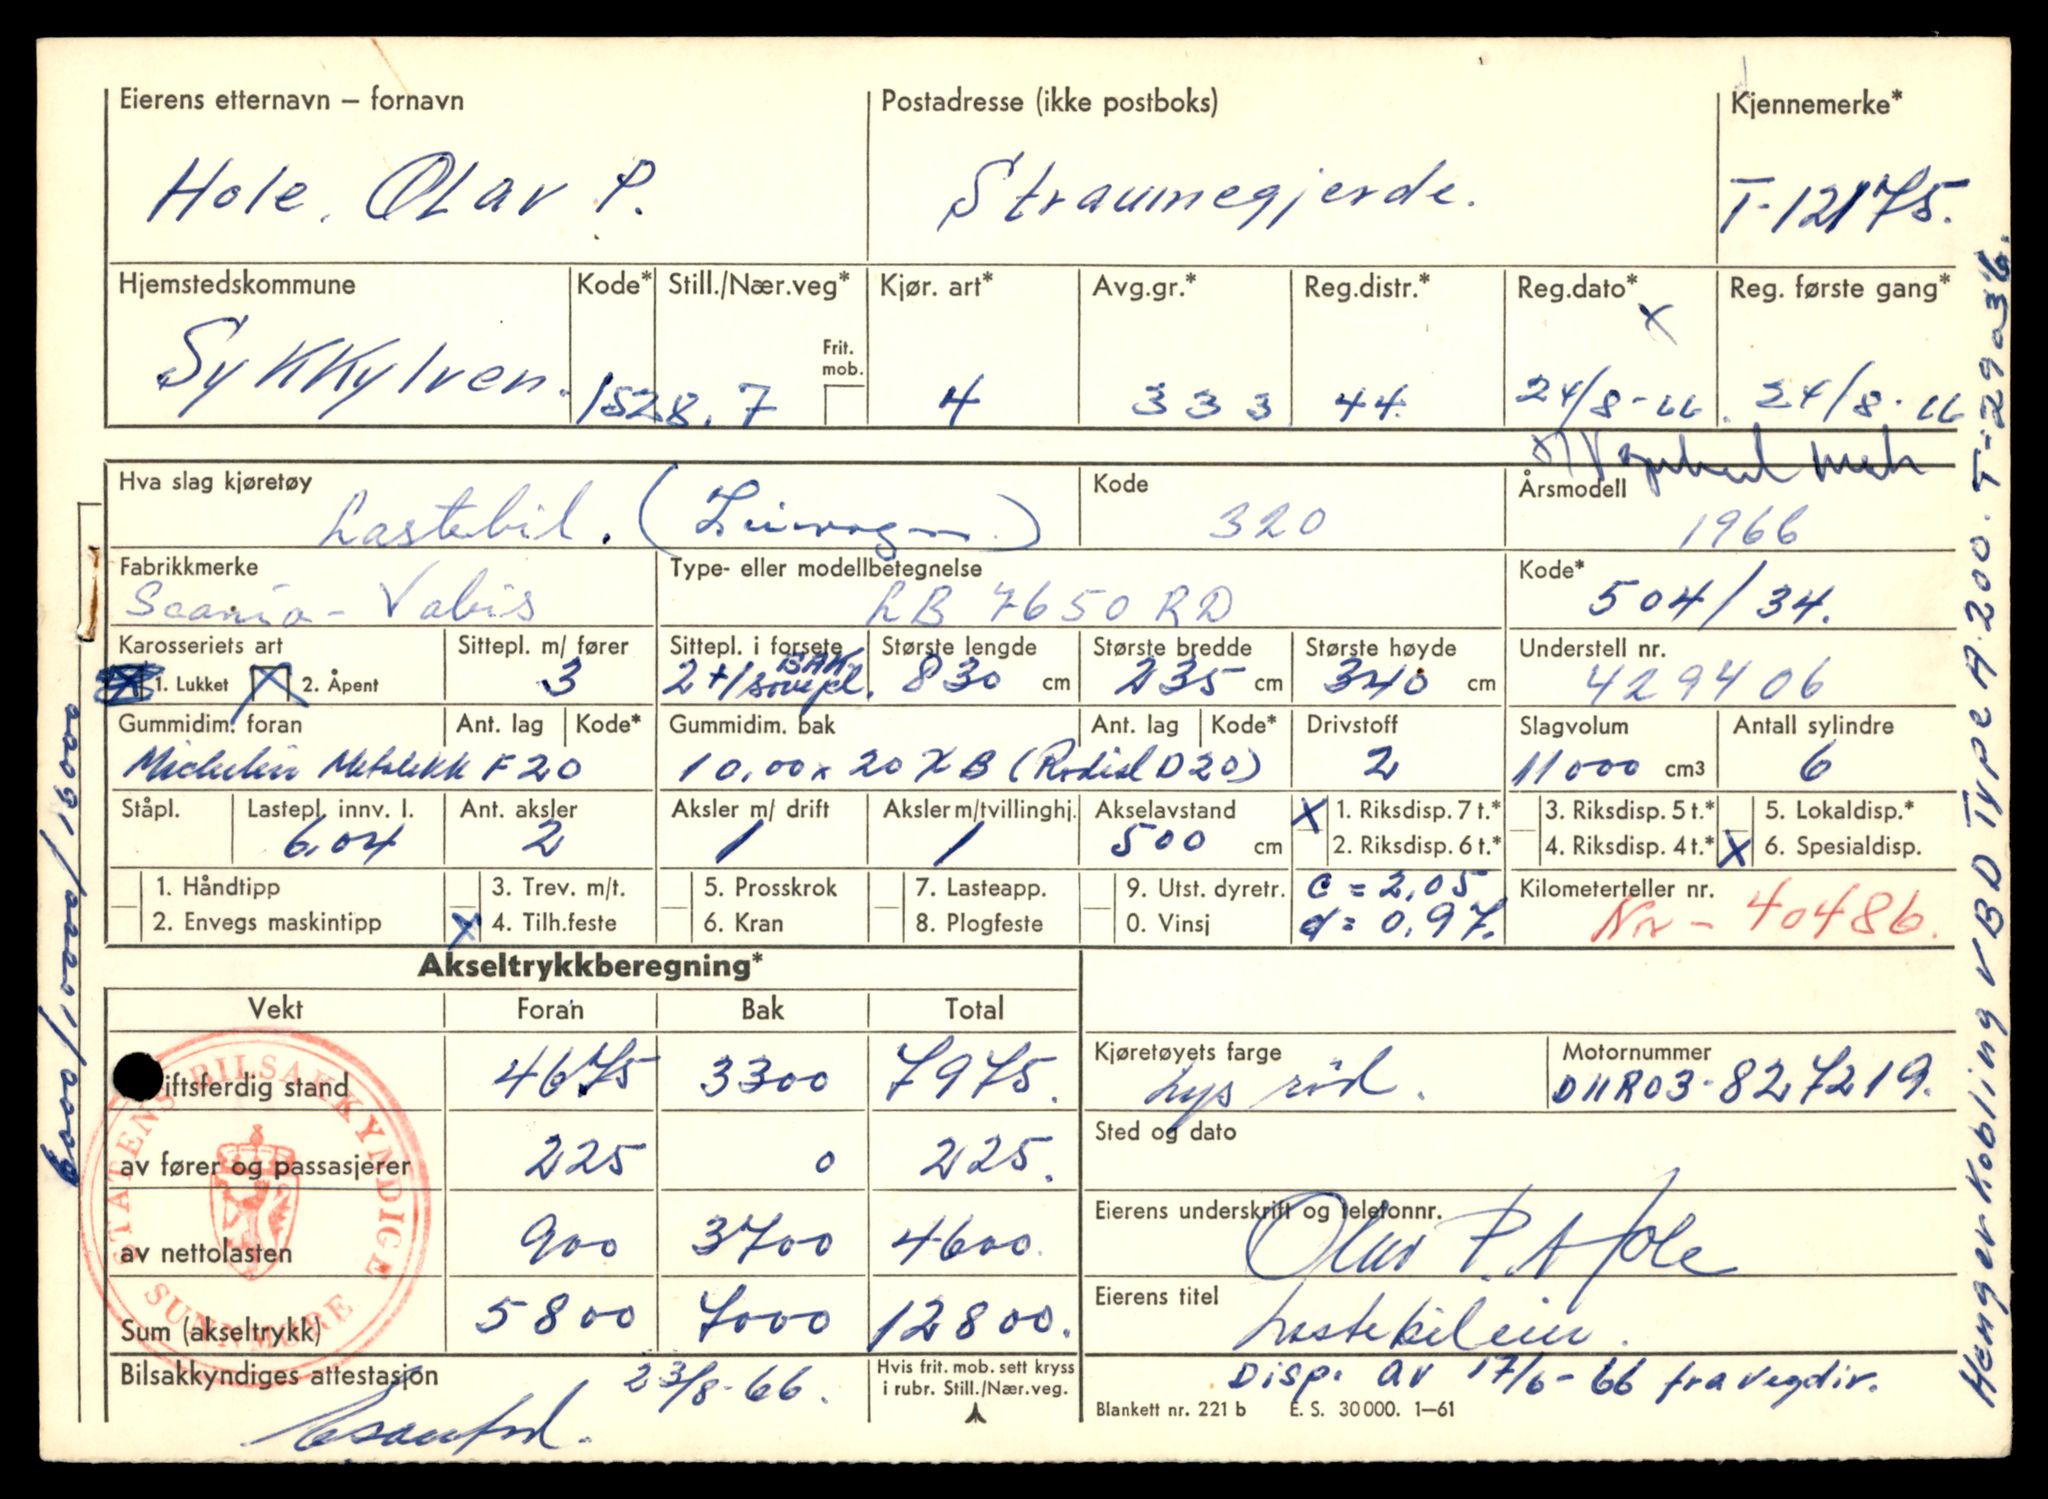 Eierens etternavn – fornavn Postadresse (ikke postboks) Kjennemerke*
Hole, Olav P. Straumegjerde. T-12175.
Hjemstedskommune Kode* Still./Nær.veg* Kjør. art* Avg.gr.* Reg.distr.* Reg.dato* Reg. første gang*
x
Frit. mob.
Sykkylven. 1528. 7 4 333 44. 24/8-66. 24/8-66
Hva slag kjøretøy Kode Årsmodell
Lastebil. ( ) 320 1966
Fabrikkmerke Type- eller modellbetegnelse Kode*
Scania-Vabis LB 7650 RD 504/34.
Karosseriets art Sittepl. m/ fører Sittepl. i forsete Største lengde Største bredde Største høyde Understell nr.
X 1. Lukket X 2. Åpent 3 2+1 BAK sovepl. 830 cm 235 cm 340 cm 429406
Gummidim. foran Ant. lag Kode* Gummidim. bak Ant. lag Kode* Drivstoff Slagvolum Antall sylindre
Michelin Metalekk F20 10,00 x 20 X B (Radial D20) 2 11000 cm3 6
Ståpl. Lastepl. innv. l. Ant. aksler Aksler m/ drift Aksler m/tvillinghj. Akselavstand X 1. Riksdisp. 7 t.* 3. Riksdisp. 5 t.* 5. Lokaldisp.*
6,04 2 1 1 500 cm 2. Riksdisp. 6 t.* 4. Riksdisp. 4 t.* X 6. Spesialdisp.
1. Håndtipp 3. Trev. m/t. 5. Prosskrok 7. Lasteapp. 9. Utst. dyretr. c = 2,05 Kilometerteller nr.
2. Envegs maskintipp X 4. Tilh.feste 6. Kran 8. Plogfeste 0. Vinsj d = 0,97. Nr - 40486.
Akseltrykkberegning*
Vekt Foran Bak Total
iftsferdig stand 4675 3300 7975.
Kjøretøyets farge Motornummer
Lys rød. D11R03-827219.
av fører og passasjerer 225 0 225.
Sted og dato
av nettolasten 900 3700 4600.
Eierens underskrift og telefonnr.
Olav P. Hole
Sum (akseltrykk) 5800 7000 12800.
Eierens titel
Lastebileier.
Bilsakkyndiges attestasjon 23/8-66. Hvis frit. mob. sett kryss i rubr. Still./Nær.veg.
Disp. av 17/6-66 fra vegdir.
Blankett nr. 221 b E. S. 30 000. 1–61
STATENS BILSAKKYNDIGE SUNNMØRE
Hengerkobling VBD Type A.200. T-29036.